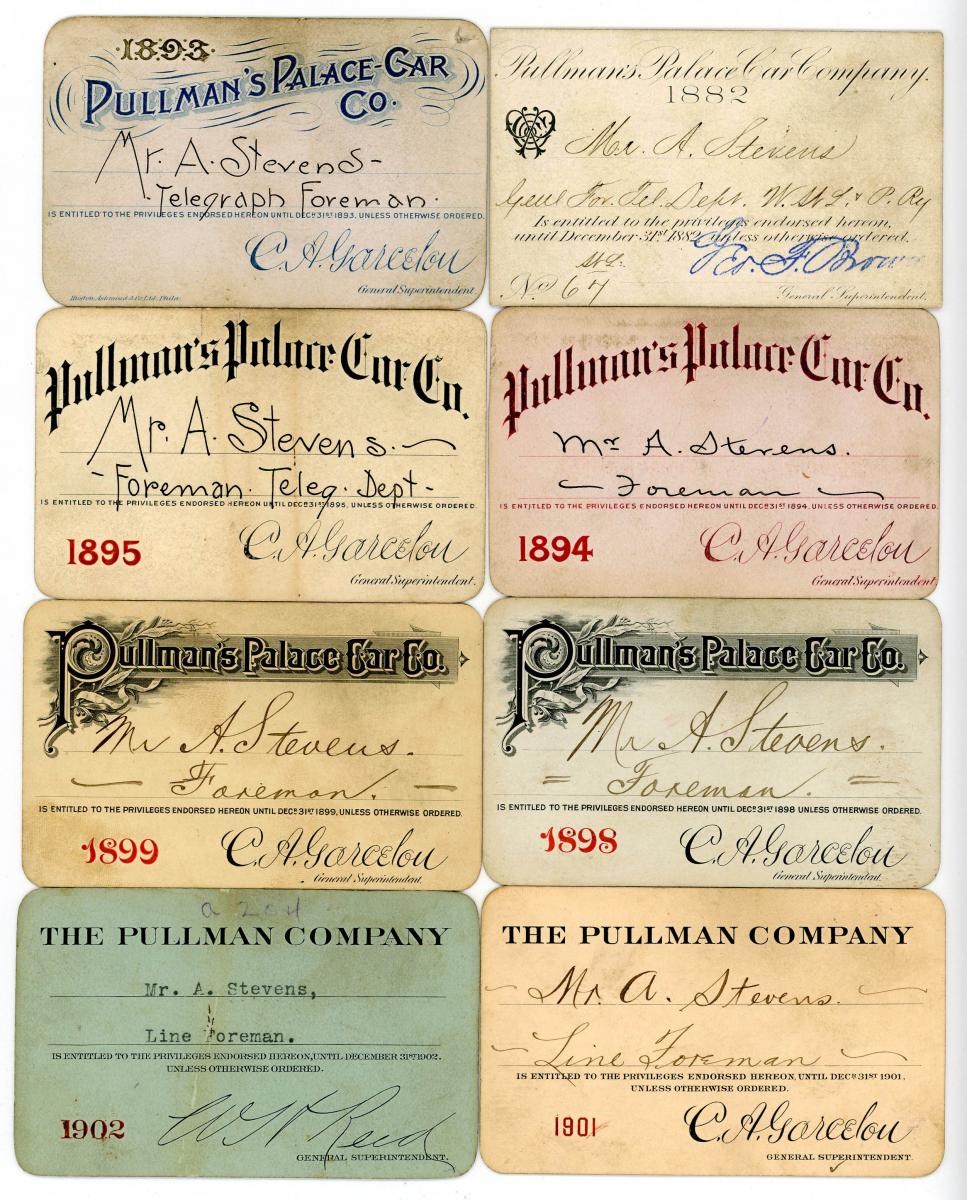 1893
PULLMAN'S PALACE-CAR
CO.
Mr. A. Stevens-
Telegraph Foreman.
IS ENTITLED TO THE PRIVILEGES ENDORSED HEREON UNTIL DECR 31ST 1893, UNLESS OTHERWISE ORDERED.
C. A. Garcelon
General Superintendent.
Pullman's Palace Car Company.
1882
Mr. A. Stevens
Genl For. Tel. Dept. W. St L. & P. Ry
Is entitled to the privileges endorsed hereon,
until December 31st 1882, unless otherwise ordered.
Geo. F. Brown
St L.
No 67
General Superintendent.
Pullman's Palace Car Co.
Mr. A. Stevens.
-Foreman. Teleg. Dept-
IS ENTITLED TO THE PRIVILEGES ENDORSED HEREON UNTIL DECR 31ST 1895, UNLESS OTHERWISE ORDERED.
1895
C. A. Garcelon
General Superintendent.
Pullman's Palace Car Co.
Mr A. Stevens.
Foreman
IS ENTITLED TO THE PRIVILEGES ENDORSED HEREON UNTIL DECR 31ST 1894, UNLESS OTHERWISE ORDERED.
1894
C. A. Garcelon
General Superintendent.
Pullman's Palace Car Co.
Mr A. Stevens.
Foreman.
IS ENTITLED TO THE PRIVILEGES ENDORSED HEREON UNTIL DECR 31ST 1899, UNLESS OTHERWISE ORDERED.
1899
C. A. Garcelon
General Superintendent.
Pullman's Palace Car Co.
Mr A. Stevens.
= Foreman. =
IS ENTITLED TO THE PRIVILEGES ENDORSED HEREON UNTIL DECR 31ST 1898 UNLESS OTHERWISE ORDERED.
1898
C. A. Garcelon
General Superintendent.
a 204
THE PULLMAN COMPANY
Mr. A. Stevens,
Line Foreman.
IS ENTITLED TO THE PRIVILEGES ENDORSED HEREON, UNTIL DECEMBER 31ST 1902.
UNLESS OTHERWISE ORDERED.
1902
GENERAL SUPERINTENDENT.
THE PULLMAN COMPANY
Mr. A. Stevens.
Line Foreman
IS ENTITLED TO THE PRIVILEGES ENDORSED HEREON, UNTIL DECR 31ST 1901.
UNLESS OTHERWISE ORDERED.
1901
C. A. Garcelon
GENERAL SUPERINTENDENT.